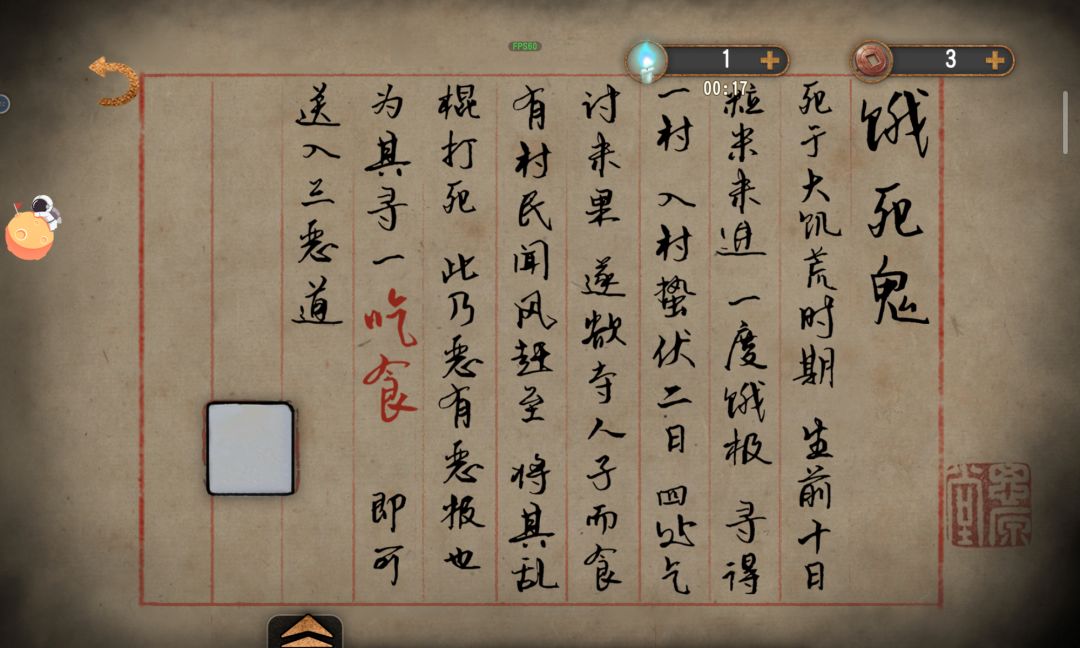 FPS60
1
3
00:17
饿死鬼
死于大饥荒时期 生前十日
粒米未进 一度饿极 寻得
一村 入村蛰伏二日 四处乞
讨未果 遂欲夺人子而食
有村民闻风赶至 将其乱
棍打死 此乃恶有恶报也
为其寻一吃食 即可
送入三恶道